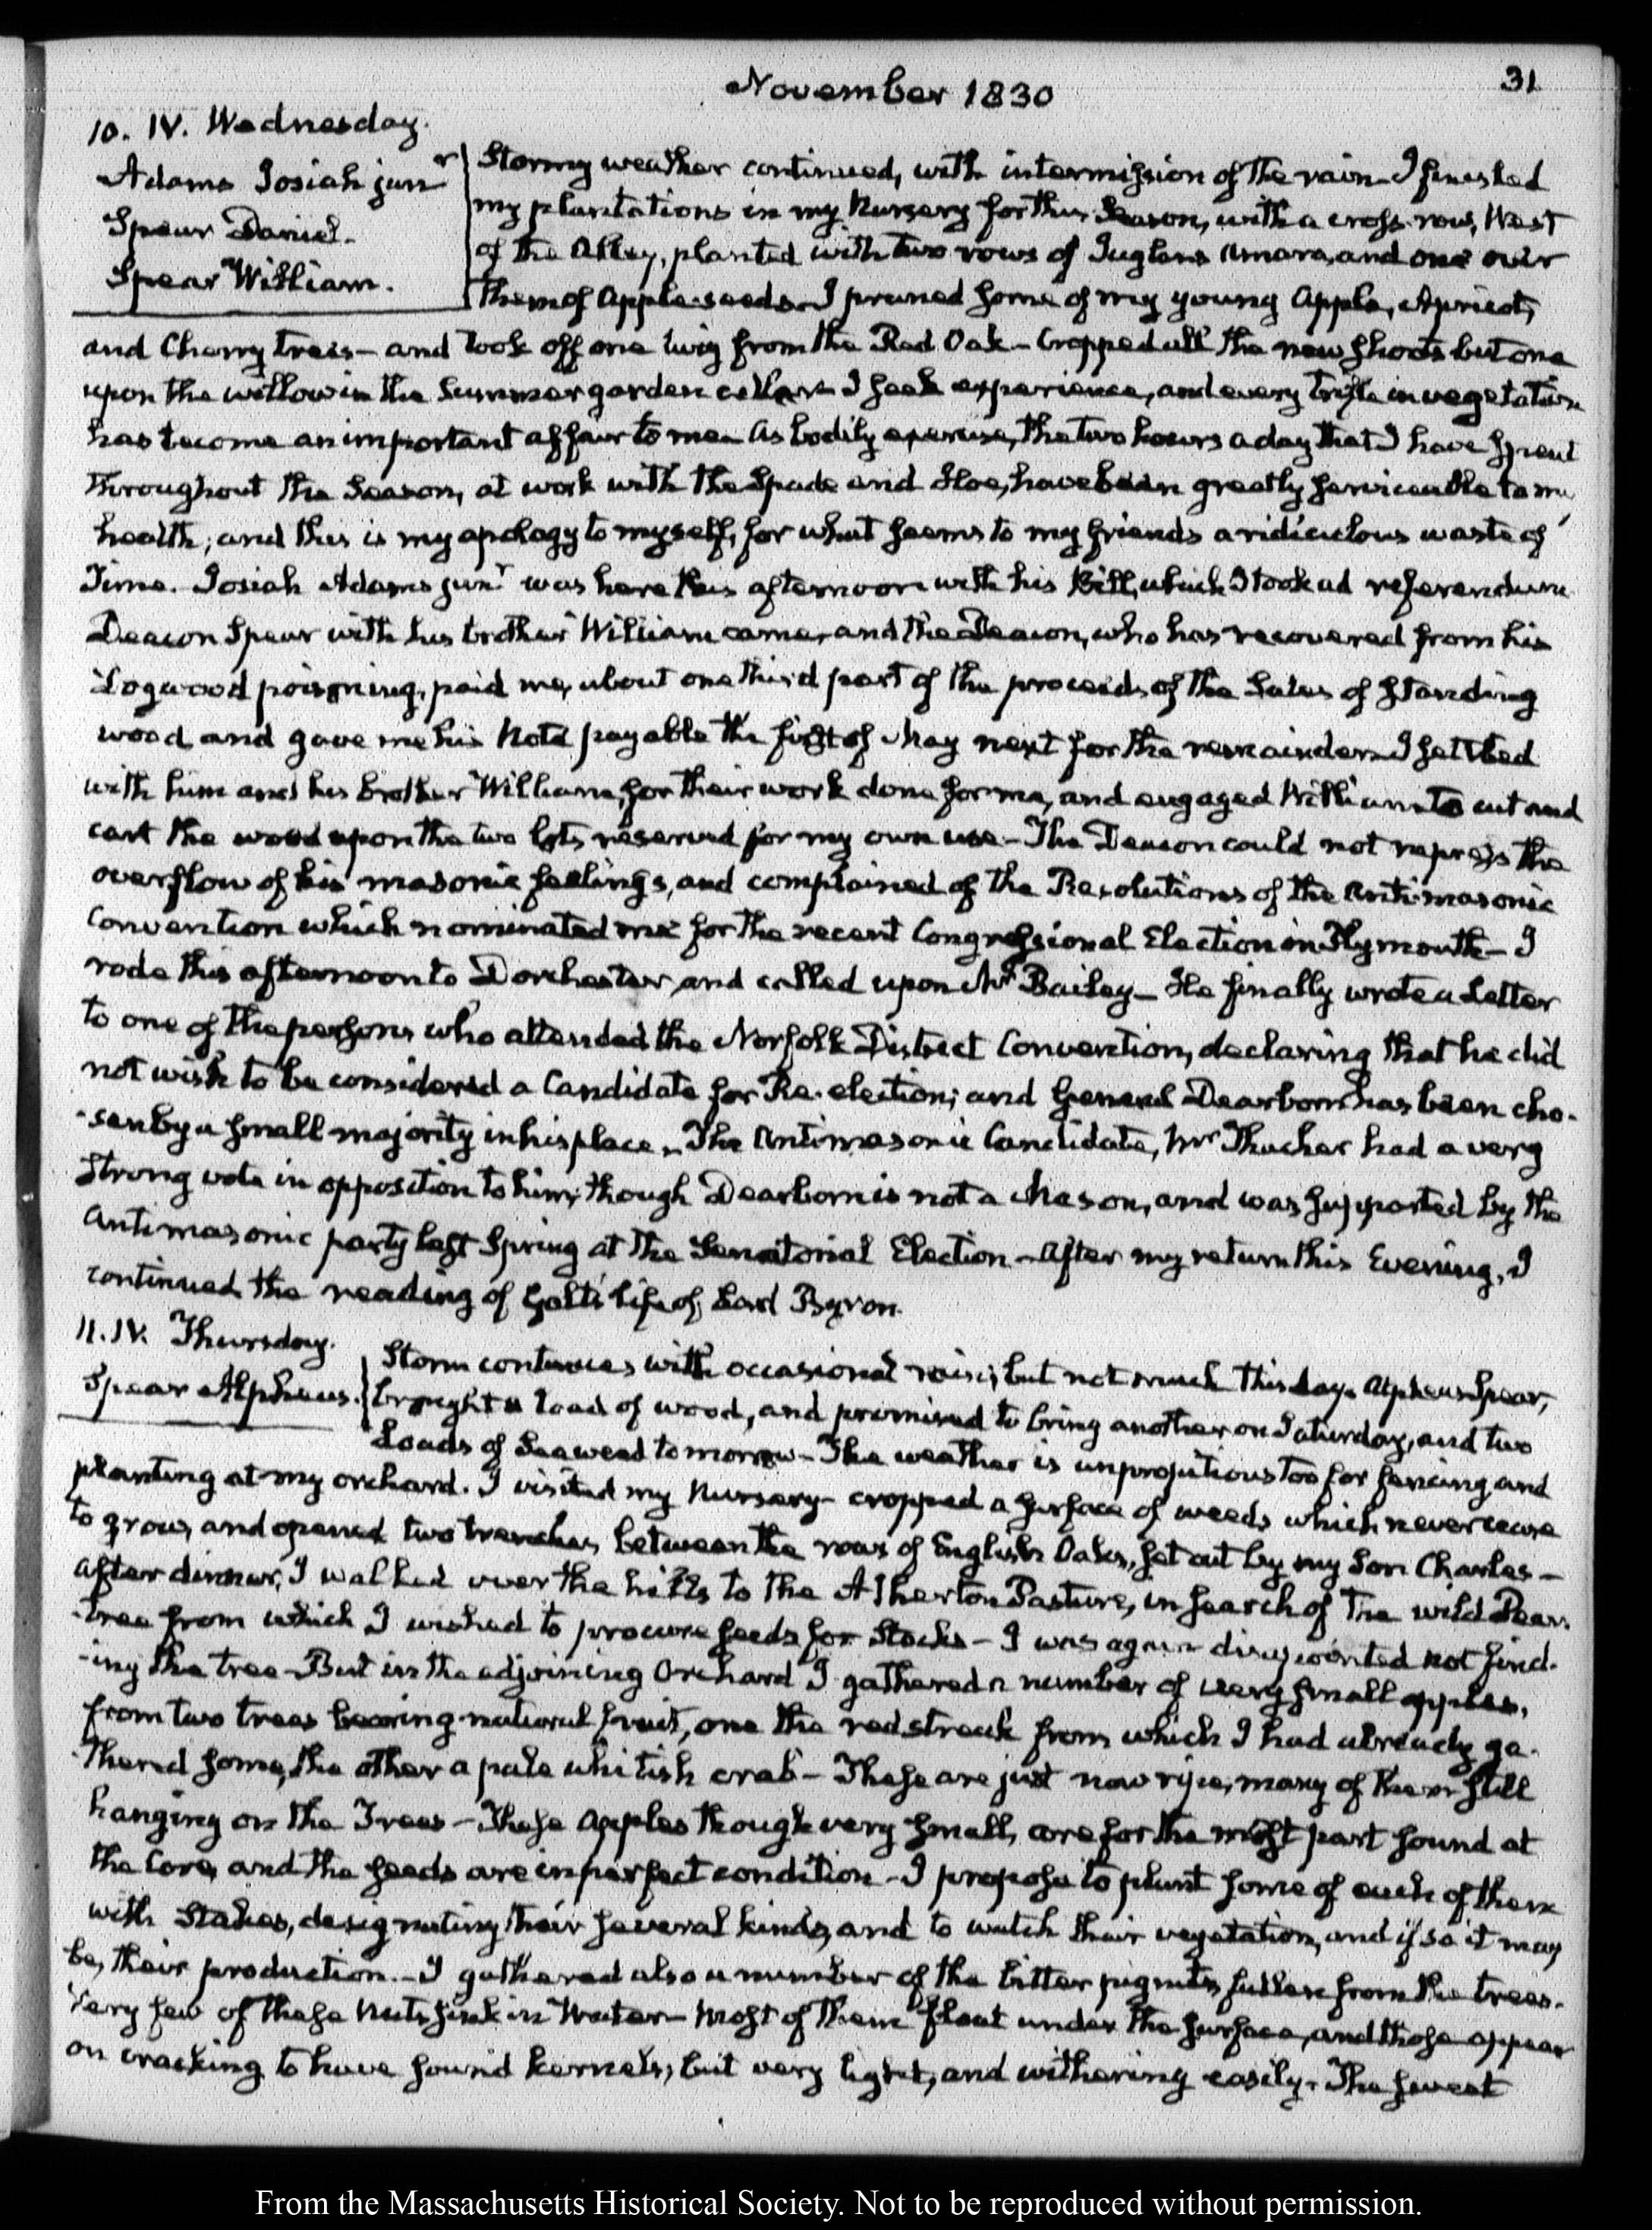 November 1830
31
10. IV. Wednesday.
Adams Josiah junr
Spear Daniel.
Spear William.
Stormy weather continued, with intermission of the rain - I finished
my plantations in my Nursery for this Season, with a cross row, West
of the Alley, planted with two rows of Juglans Amara, and one over
them of Apple-seeds - I pruned some of my young Apple, Apricot,
and Cherry trees - and took off one twig from the Red Oak - Cropped all the new shoots but one
upon the willow in the Summer garden cellar - I seek experience, and every trifle in vegetation
has become an important affair to me - As bodily exercise, the two hours a day that I have spent
throughout the Season, at work with the Spade and Hoe, have been greatly serviceable to my
health; and this is my apology to myself, for what seems to my friends a ridiculous waste of
Time. Josiah Adams junr was here this afternoon with his Bill, which I took ad referendum
Deacon Spear with his brother William came, and the Deacon, who has recovered from his
Logwood poisoning, paid me, about one third part of the proceeds of the Sales of standing
wood and gave me his Note payable the first of May next for the remainder - I settled
with him and his brother William, for their work done for me, and engaged William to cut and
cart the wood upon the two lots reserved for my own use - The Deacon could not repress the
overflow of his masonic feelings, and complained of the Resolutions of the Anti-masonic
Convention which nominated me for the recent Congressional Election in Plymouth - I
rode this afternoon to Dorchester, and called upon Mr Bailey - He finally wrote a Letter
to one of the persons who attended the Norfolk District Convention, declaring that he did
not wish to be considered a Candidate for Re-election; and General Dearborn has been cho-
-sen by a small majority in his place - The Antimasonic Candidate, Mr Thacher had a very
strong vote in opposition to him, though Dearborn is not a Mason, and was supported by the
Antimasonic party last Spring at the Senatorial Election - After my return this Evening, I
continued the reading of Galt's life of Lord Byron.
11. IV. Thursday.
Spear Alpheus.
Storm continues with occasional rain; but not much this day - Alpheus Spear,
brought a load of wood, and promised to bring another on Saturday, and two
Loads of Seaweed tomorrow - The weather is unpropitious too for fencing and
planting at my orchard. I visited my Nursery - cropped a surface of weeds which never cease
to grow, and opened two trenches, between the rows of English Oaks, set out by my Son Charles -
After dinner, I walked over the hills to the Atherton Pasture, in search of the wild Pear
-tree from which I wished to procure seeds for Stocks - I was again disappointed not find-
-ing the tree - But in the adjoining Orchard I gathered a number of very small apples,
from two trees bearing natural fruit, one the redstreak from which I had already ga-
-thered some, the other a pale whitish crab - These are just now ripe, many of them still
hanging on the Trees - These Apples though very small, are for the most part sound at
the Core, and the seeds are in perfect condition - I propose to plant some of each of them
with Stakes, designating their several kinds, and to watch their vegetation, and if so it may
be, their production. - I gathered also a number of the bitter pignuts fallen from the trees.
Very few of these Nuts sink in Water - Most of them float under the surface, and those appear
on cracking to have sound kernels; but very light, and withering easily - The sweet
From the Massachusetts Historical Society. Not to be reproduced without permission.